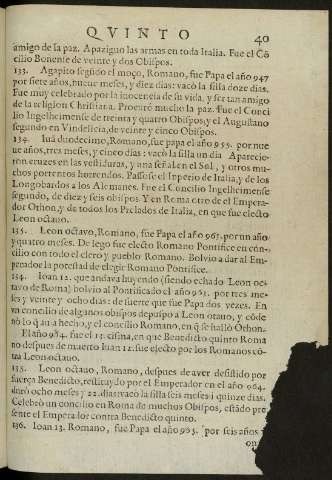 QVINTO 40
amigo de la paz. Apaziguo las armas en toda Italia. Fue el Cõ
cilio Bonense de veinte y dos Obispos.
133. Agapito segũdo el moço, Romano, fue Papa el año 947
por siete años, nueue meses, y diez dias: vacò la silla doze dias.
Fue muy celebrado por la inocencia de su vida, y ser tan amigo
de la religion Christiana. Procurò mucho la paz. Fue el Conci
lio Ingelheimense de treinta y quatro Obispos, y el Augustano
segundo en Vindelicia, de veinte y cinco Obispos.
134. Iuã duodecimo, Romano, fue papa el año 955. por nue
ue años, tres meses, y cinco dias: vacò la silla un dia Aparecie-
ron cruzes en las vestiduras, y una señal en el Sol, y otros mu-
chos portentos horrendos. Passose el Imperio de Italia, y de los
Longobardos a los Alemanes. Fue el Concilio Ingelheimense
segundo, de diez y seis obispos. Y en Roma otro de el Empera-
dor Othon, y de todos los Prelados de Italia, en que fue electo
Leon octauo.
135. Leon octavo, Romano, fue Papa el año 963. por un año
y quatro meses. De lego fue electo Romano Pontifice en con-
cilio con todo el clero y pueblo Romano. Bolvio a dar al Em-
perador la potestad de elegir Romano Pontifice.
134. Ioan 12. que andava huyendo (siendo echado Leon oc-
tavo de Roma) bolvio al Pontificado el año 963. por tres me-
ses y veinte y ocho dias: de suerte que fue Papa dos vezes. En
un concilio de algunos obispos depuso a Leon otauo, y cõde-
nò lo q̃ au a hecho, y el concilio Romano, en q̃ se hallò Othon.
El año 964. fue el 15. cisma, en que Benedicto quinto Roma
no despues de muerto Iuan 12. fue electo por los Romanos cõ-
tra Leon octauo.
135. Leon octauo, Romano, despues de aver desistido por
fuerça Benedicto, restituydo por el Emperador en el año 964.
durò ocho meses y 22. dias: vacò la silla seis meses i quinze dias.
Celebrò un concilio en Roma de muchos Obispos, estãdo pre
sente el Emperador contra Benedicto quinto.
136. Ioan 13. Romano, fue Papa el año 965. por seis años